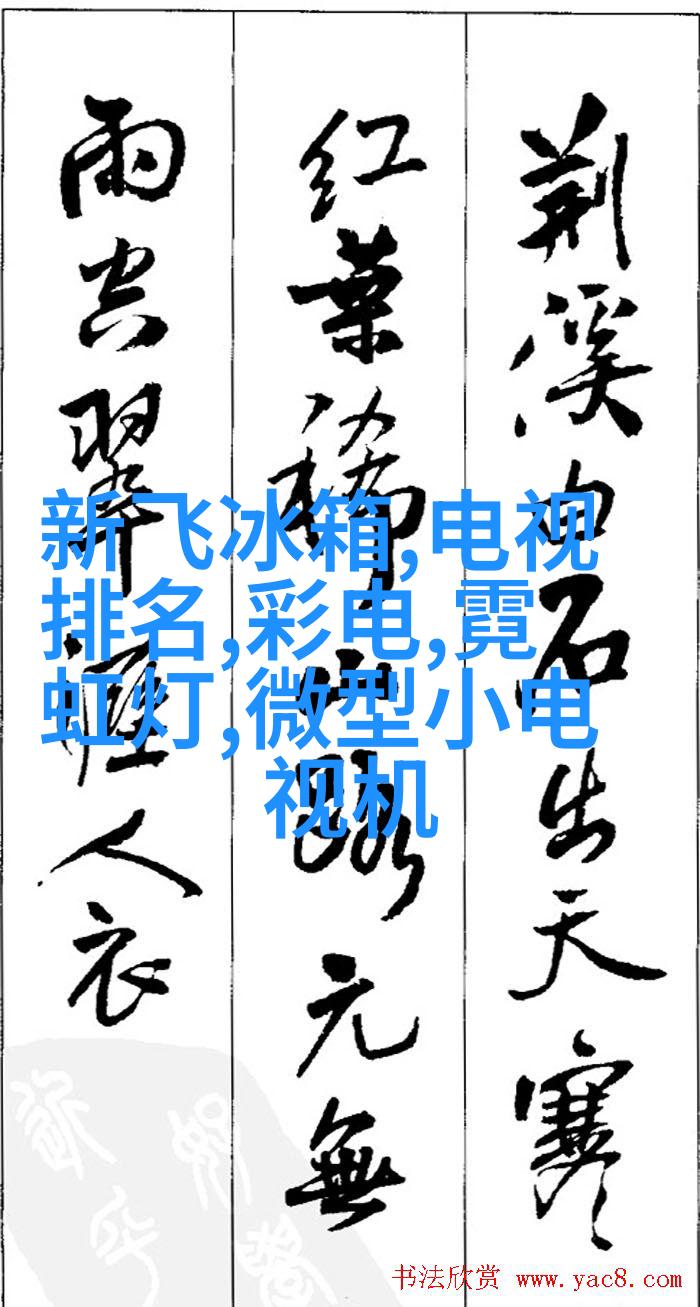 荆溪白石出天寒
红葉稀山路元無
雨空翠溼人衣
新飞冰箱,电视
排名,彩电,霓
虹灯,微型小电
视机
书法欣赏 www.yac8.com